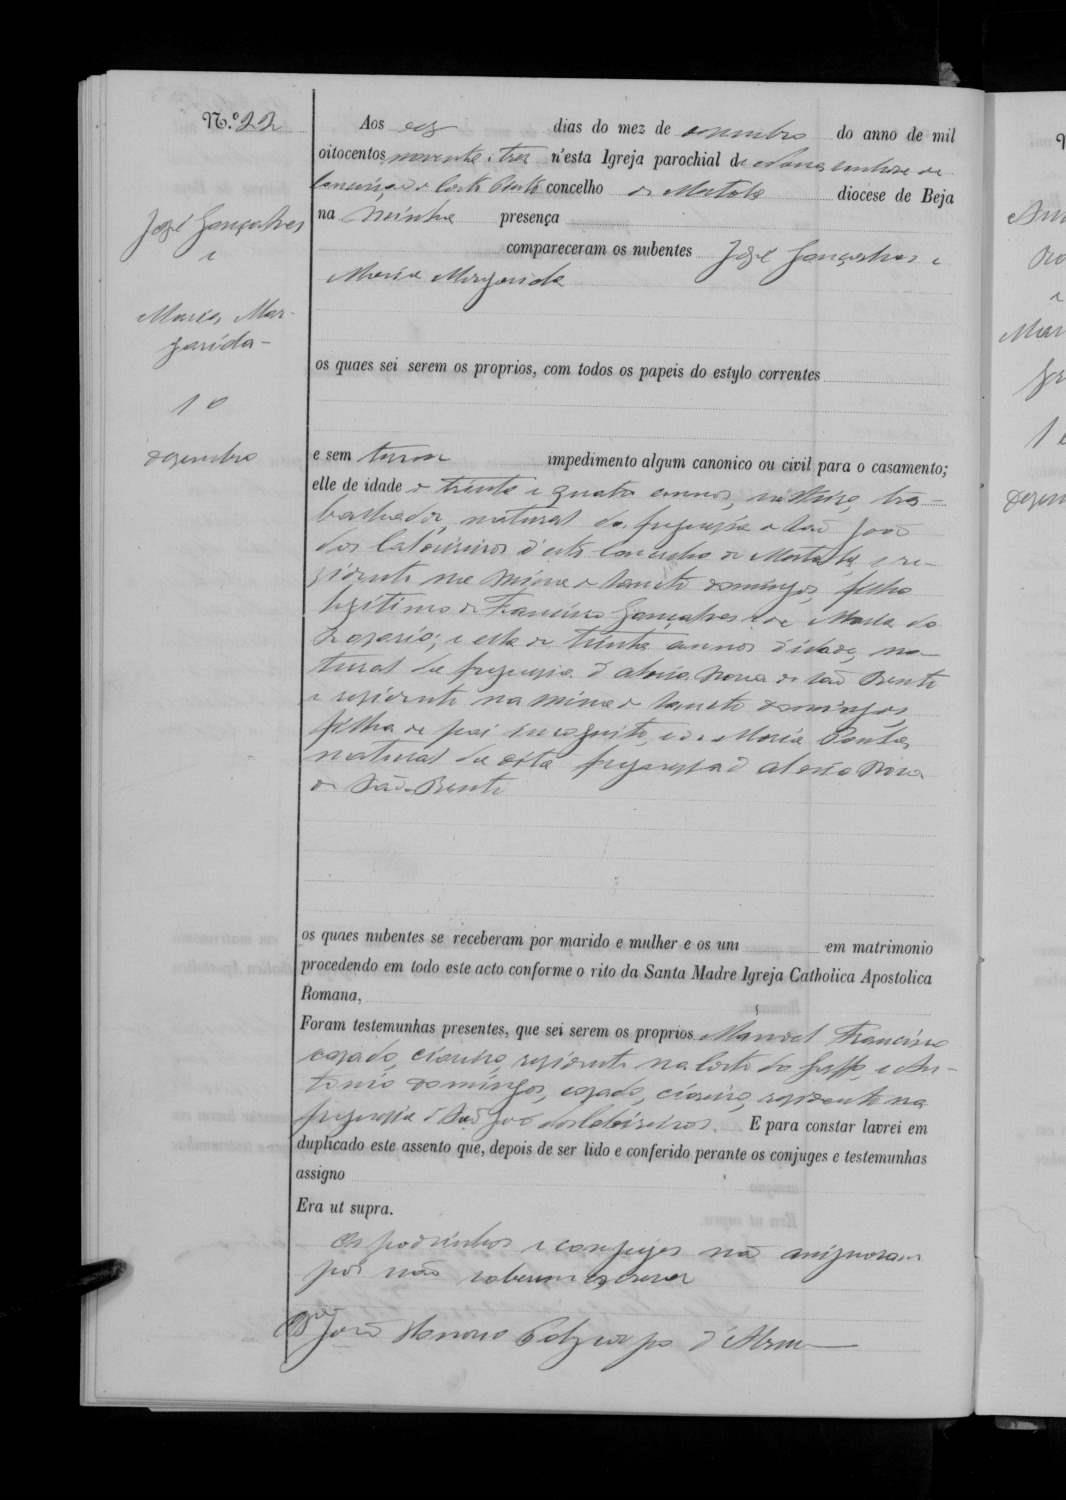 N.º 22
José Gonçalves
e
Maria Mar-
garida -
10
dezembro
Aos dez dias do mez de dezembro do anno de mil
oitocentos noventa e tres n'esta Igreja parochial de Nossa Senhora da
Conceição concelho de Mertola diocese de Beja
na minha presença
compareceram os nubentes José Gonçalves e
Maria Margarida
os quaes sei serem os proprios, com todos os papeis do estylo correntes
e sem terem impedimento algum canonico ou civil para o casamento;
elle de idade de trinta e quatro annos, solteiro, tra-
balhador, natural da freguezia de São João
dos Caldeireiros d'este concelho de Mertola, e re-
zidente na Mina de Sancto Domingos, filho
legitimo de Francisco Gonçalves e de Maria do
Rozario; e ella de trinta annos d'idade, na-
tural da freguezia d'Aldeia Nova de São Bento
e rezidente na Mina de Sancto Domingos,
filha de pai incognito, e de Maria Bento,
natural da dita freguezia d'Aldeia Nova
de São Bento
os quaes nubentes se receberam por marido e mulher e os uni em matrimonio
procedendo em todo este acto conforme o rito da Santa Madre Igreja Catholica Apostolica
Romana,
Foram testemunhas presentes, que sei serem os proprios Manoel Francisco
cazado, rezidente na Corte do e An-
tonio Domingos, cazado, rezidente na
freguezia de São João dos Caldeireiros. E para constar lavrei em
duplicado este assento que, depois de ser lido e conferido perante os conjuges e testemunhas
assigno
Era ut supra.
Os padrinhos e conjuges não assignaram
por não saberem escrever
João